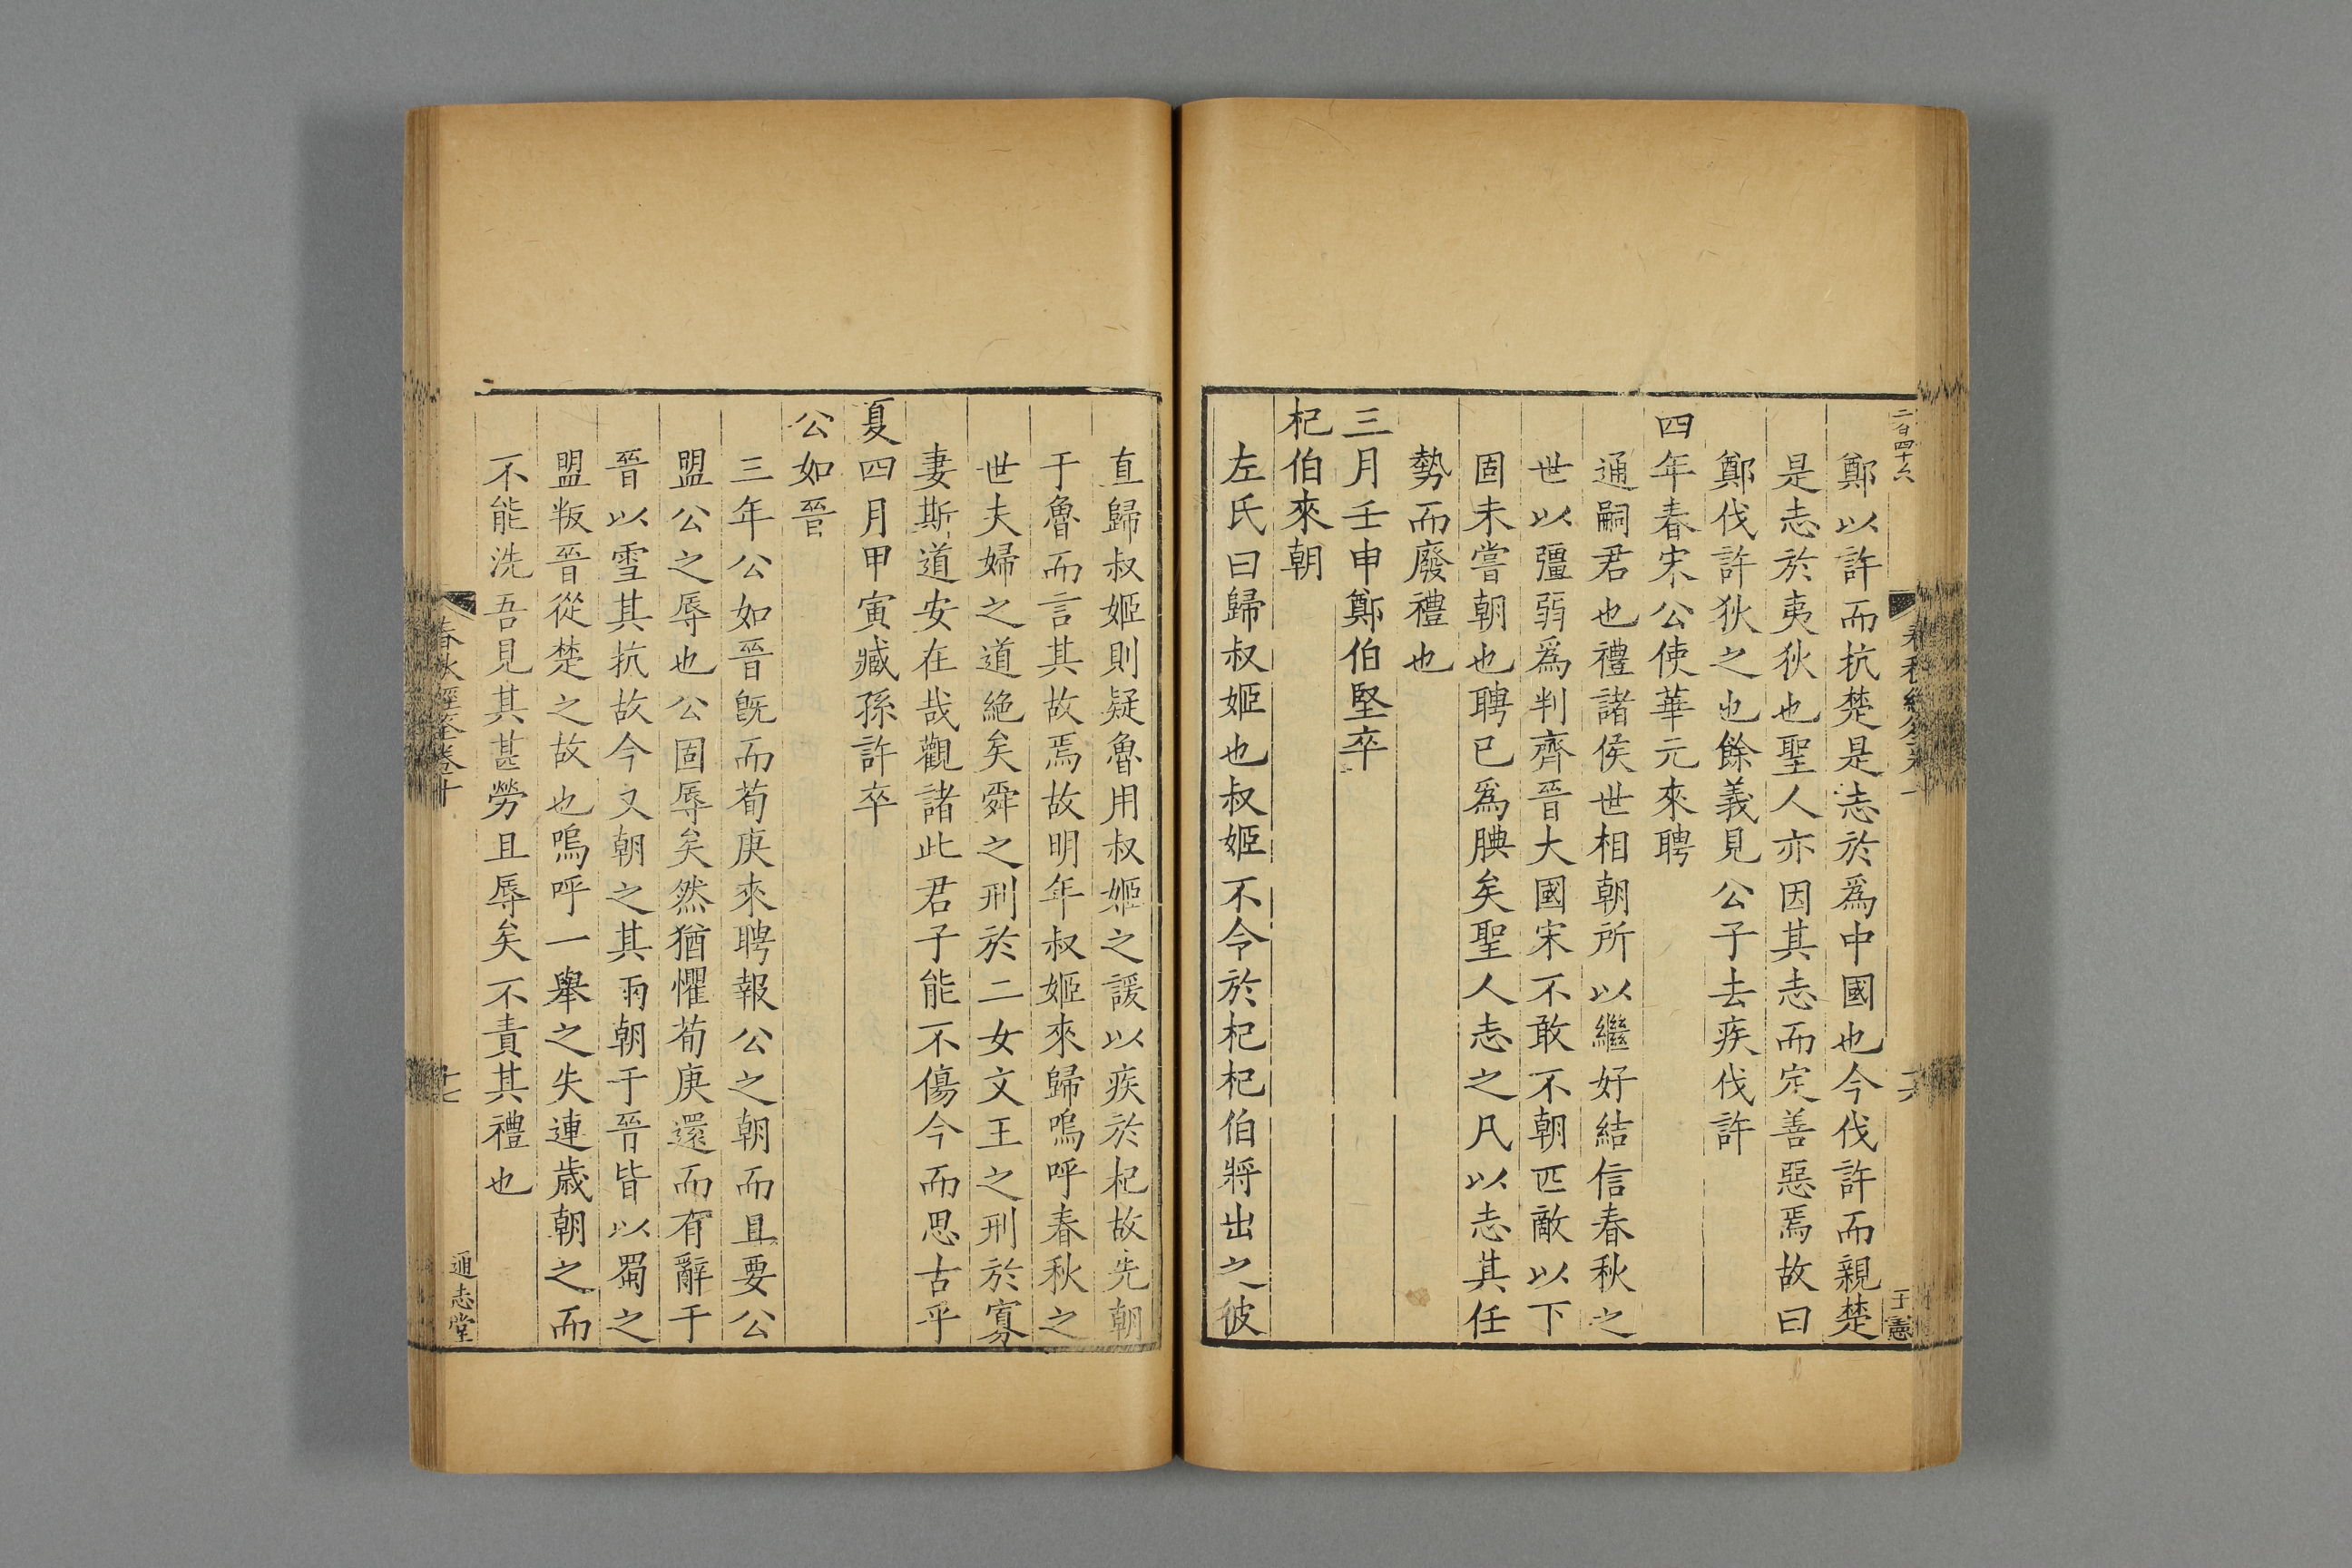 二百四十六
鄭以許而抗楚是志於爲中國也今伐許而親楚
是志於夷狄也聖人亦因其志而定善惡焉故曰
鄭伐許狄之也餘義見公子去疾伐許
四年春宋公使華元來聘
通嗣君也禮諸侯世相朝所以繼好結信春秋之
世以彊弱爲判齊晉大國宋不敢不朝匹敵以下
固未嘗朝也聘已爲腆矣聖人志之凡以志其任
勢而廢禮也
三月壬申鄭伯堅卒
杞伯來朝
左氏曰歸叔姬也叔姬不令於杞杞伯將出之彼
直歸叔姬則疑魯用叔姬之諼以疾於杞故先朝
于魯而言其故焉故明年叔姬來歸嗚呼春秋之
世夫婦之道絶矣舜之刑於二女文王之刑於寡
妻斯道安在哉觀諸此君子能不傷今而思古乎
夏四月甲寅臧孫許卒
公如晉
三年公如晉旣而荀庚來聘報公之朝而且要公
盟公之辱也公固辱矣然猶懼荀庚還而有辭于
晉以雪其抗故今又朝之其兩朝于晉皆以蜀之
盟叛晉從楚之故也嗚呼一舉之失連歲朝之而
不能洗吾見其甚勞且辱矣不責其禮也
春秋經筌卷十
十七
通志堂